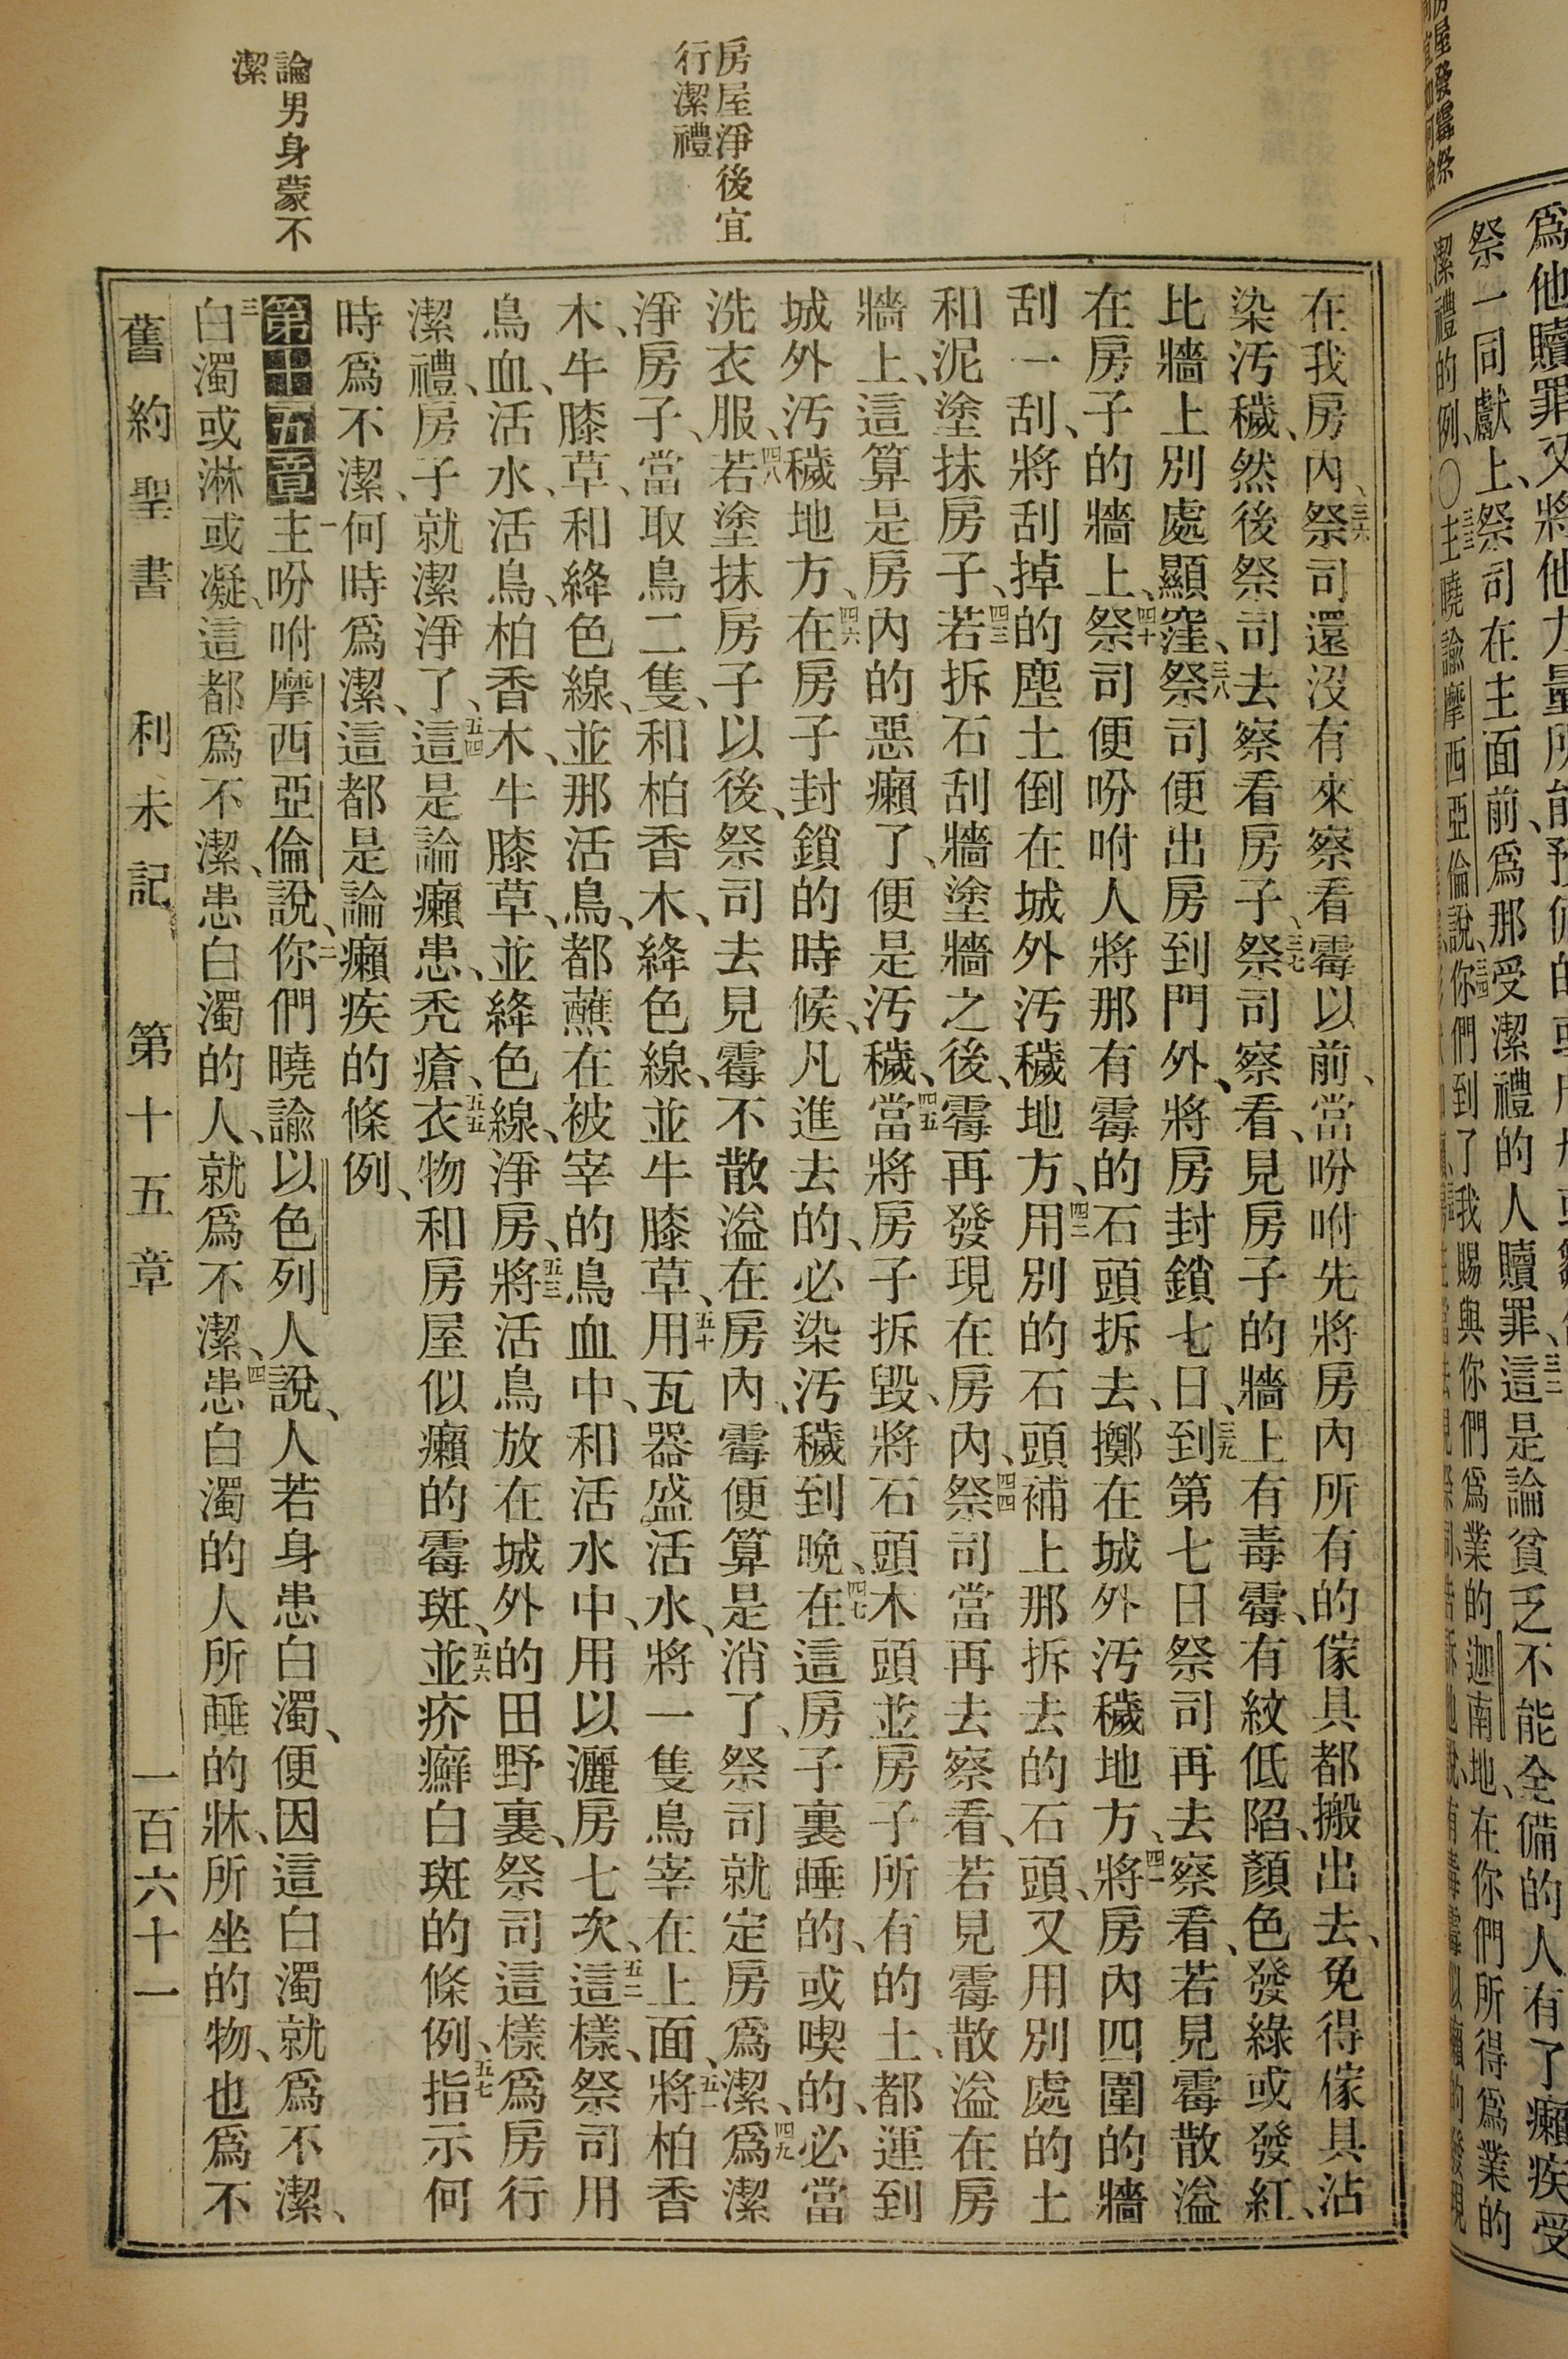 房屋淨後宜
行潔禮
論男身蒙不
潔
在我房內、三六祭司還沒有來察看霉以前、當吩咐先將房內所有的傢具都搬出去、免得傢具沾
染汚穢、然後祭司去察看房子、三七祭司察看、見房子的牆上有毒霉、有紋低陷、顏色發綠或發紅、
比牆上別處顯窪、三八祭司便出房到門外、將房封鎖七日、三九到第七日祭司再去察看、若見霉散溢
在房子的牆上、四十祭司便吩咐人將那有霉的石頭拆去、擲在城外汚穢地方、四一將房內四圍的牆
刮一刮、將刮掉的塵土倒在城外汚穢地方、四二用別的石頭補上那拆去的石頭、又用別處的土
和泥塗抹房子、四三若拆石刮牆塗牆之後、霉再發現在房內、四四祭司當再去察看、若見霉散溢在房
牆上、這算是房內的惡癩了、便是汚穢、四五當將房子拆毀、將石頭木頭並房子所有的土、都運到
城外汚穢地方、四六在房子封鎖的時候、凡進去的、必染汚穢到晚、四七在這房子裏睡的、或喫的、必當
洗衣服、四八若塗抹房子以後、祭司去見霉不散溢在房內、霉便算是消了、祭司就定房爲潔、四九爲潔
淨房子、當取鳥二隻、和柏香木、絳色線、並牛膝草、五十用瓦器盛活水、將一隻鳥宰在上面、五一將柏香
木、牛膝草、和絳色線、並那活鳥、都蘸在被宰的鳥血中、和活水中、用以灑房七次、五二這樣、祭司用
鳥血、活水、活鳥、柏香木、牛膝草、並絳色線、淨房、五三將活鳥放在城外的田野裏、祭司這樣爲房行
潔禮、房子就潔淨了、五四這是論癩患、禿瘡、五五衣物和房屋似癩的霉斑、五六並疥癬白斑的條例、五七指示何
時爲不潔、何時爲潔、這都是論癩疾的條例、
第十五章 一主吩咐摩西亞倫說、二你們曉諭以色列人說、人若身患白濁、便因這白濁就爲不潔、
三白濁或淋或凝、這都爲不潔、患白濁的人、就爲不潔、四患白濁的人所睡的牀、所坐的物、也爲不
舊約聖書 利未記 第十五章 一百六十一